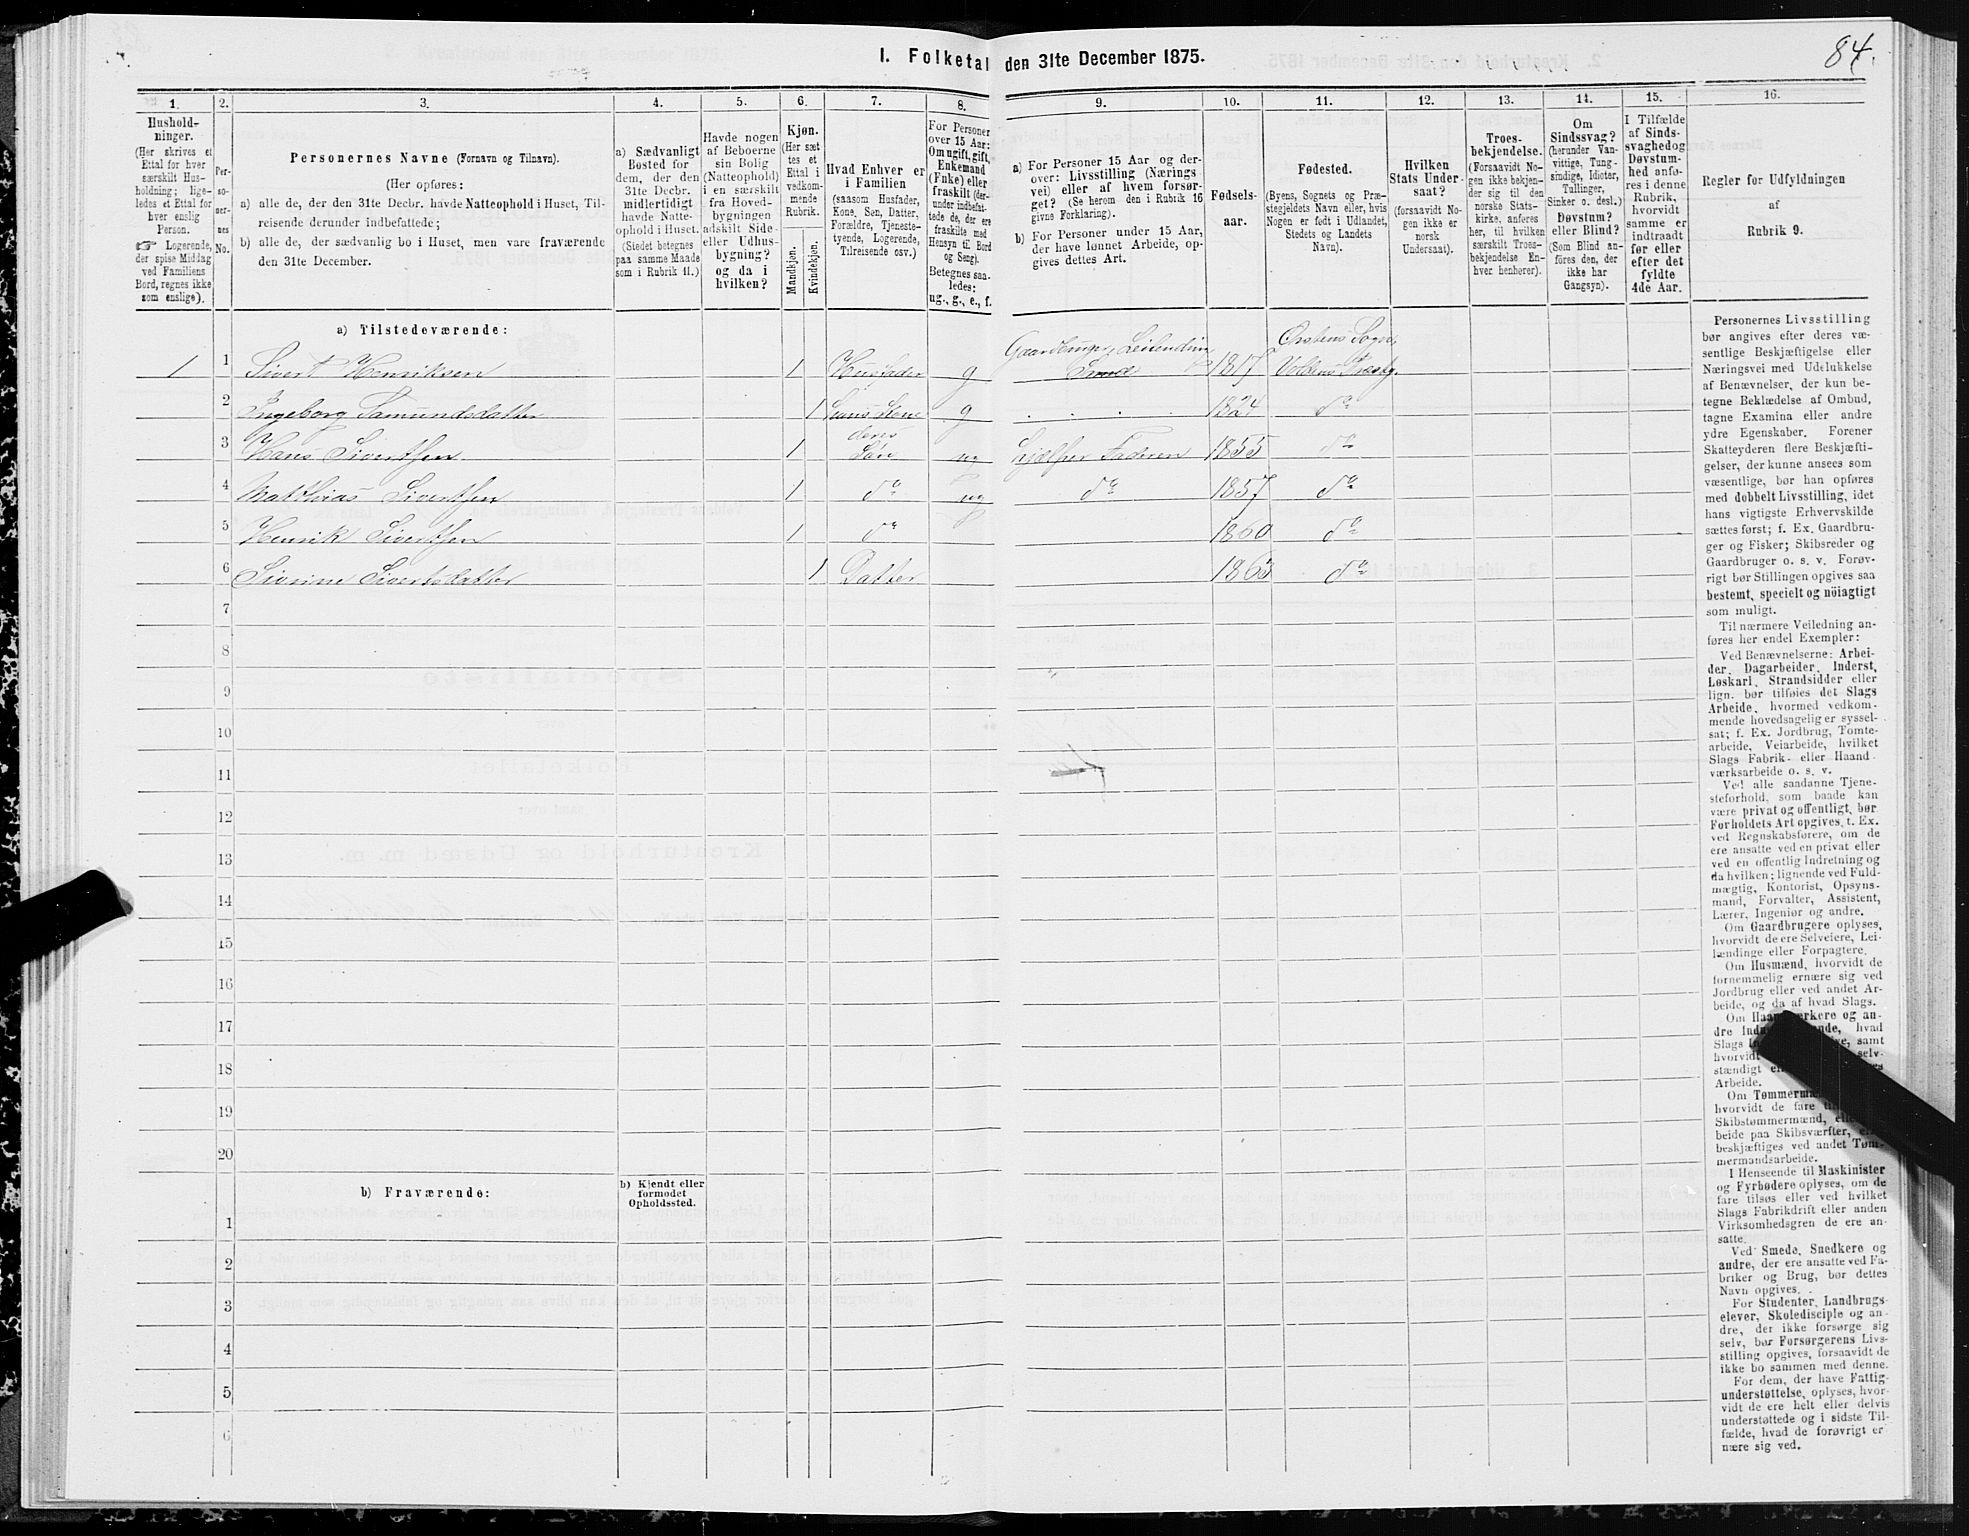 84.
I. Folketal den 31te December 1875.
1. 2. 3. 4. 5. 6. 7. 8. 9. 10. 11. 12. 13. 14. 15. 16.
Hushold-
ninger.
(Her skrives et
Ettal for hver
særskilt Hus-
holdning; lige-
ledes et Ettal for
hver enslig
Person.
☞ Logerende,
der spise Middag
ved Familiens
Bord, regnes ikke
som enslige).
Per-
so-
ner-
nes
No.
Personernes Navne (Fornavn og Tilnavn).
(Her opføres:
a) alle de, der den 31te Decbr. havde Natteophold i Huset, Til-
reisende derunder indbefattede;
b) alle de, der sædvanlig bo i Huset, men vare fraværende
den 31te December.
a) Sædvanligt
Bosted for
dem, der den
31te Decbr.
midlertidigt
havde Natte-
ophold i Huset.
(Stedet betegnes
paa samme Maade
som i Rubrik 11.)
Havde nogen
af Beboerne
sin Bolig
(Natteophold)
i en særskilt
fra Hoved-
bygningen
adskilt Side-
eller Udhus-
bygning?
og da i
hvilken?
Kjøn.
(Her sæt-
tes et
Ettal i
vedkom-
mende
Rubrik.
Mandkjøn.
Kvindekjøn.
Hvad Enhver er
i Familien
(saasom Husfader,
Kone, Søn, Datter,
Forældre, Tjeneste-
tyende, Logerende,
Tilreisende osv.)
For Personer
over 15 Aar:
Om ugift, gift,
Enkemand
(Enke) eller
fraskilt (der-
under indbefat-
tede de, der ere
fraskilte med
Hensyn til Bord
og Seng).
Betegnes saa-
ledes:
ug., g., e., f.
a) For Personer 15 Aar og der-
over: Livsstilling (Nærings-
vei) eller af hvem forsør-
get? (Se herom den i Rubrik 16
givne Forklaring).
b) For Personer under 15 Aar,
der have lønnet Arbeide, op-
gives dettes Art.
Fødsels-
aar.
Fødested.
(Byens, Sognets og Præ-
stegjeldets Navn eller, hvis
Nogen er født i Udlandet,
Stedets og Landets
Navn).
Hvilken
Stats Under-
saat?
(forsaavidt No-
gen ikke er
norsk
Undersaat).
Troes-
bekjendelse.
(Forsaavidt No-
gen ikke bekjen-
der sig til den
norske Stats-
kirke, anføres
her, til hvilken
særskilt Troes-
bekjendelse En-
hver henhører).
Om
Sindssvag?
(herunder Van-
vittige, Tung-
sindige, Idioter,
Tullinger,
Sinker o. desl.)
Døvstum?
eller Blind?
(Som Blind an-
föres den, der
ikke har
Gangsyn).
I Tilfælde
af Sinds-
svaghed og
Døvstum-
hed anfø-
res i denne
Rubrik,
hvorvidt
samme er
indtraadt
før eller
efter det
fyldte
4de Aar.
Regler for Udfyldningen
af
Rubrik 9.
a) Tilstedeværende:
Gaardbruger, Leilending Ørstens Sogn,
1 1 Sivert Henriksen 1 Husfader g Smed 1817 Voldens Præstg.
2 Ingeborg Samundsdatter 1 hans Kone g . . . 1824 do
3 Hans Sivertsen 1 deres Søn ug hjælper Faderen 1855 do
4 Matthias Sivertsen 1 do ug do 1857 do
5 Henrik Sivertsen 1 do 1860 do
6 Sivrine Sivertsdatter 1 Datter 1863 do
7
8
9
10
11
12
13
14
15
16
17
18
19
20
b) Fraværende:
b) Kjendt eller
formodet
Opholdssted.
1
2
3
4
5
6
Personernes Livsstilling
bør angives efter deres væ-
sentlige Beskjæftigelse eller
Næringsvei med Udelukkelse
af Benævnelser, der kun be-
tegne Beklædelse af Ombud,
tagne Examina eller andre
ydre Egenskaber. Forener
Skatteyderen flere Beskjæfti-
gelser, der kunne ansees som
væsentlige, bør han opføres
med dobbelt Livsstilling, idet
hans vigtigste Erhvervskilde
sættes først; f. Ex. Gaardbru-
ger og Fisker; Skibsreder og
Gaardbruger o. s. v. Forøv-
rigt bør Stillingen opgives saa
bestemt, specielt og nöiagtigt
som muligt.
Til nærmere Veiledning an-
føres her endel Exempler:
Ved Benævnelserne: Arbei-
der, Dagarbeider, Inderst,
Løskarl, Strandsidder eller
lign. bør tilføies det Slags
Arbeide, hvormed vedkom-
mende hovedsagelig er syssel-
sat; f. Ex. Jordbrug, Tomte-
arbeide, Veiarbeide, hvilket
Slags Fabrik- eller Haand
værksarbeide o. s. v.
Ved alle saadanne Tjene-
steforhold, som baade kan
være privat og offentligt, bør
Forholdets Art opgives, t. Ex.
ved Regnskabsførere, om de
ere ansatte ved en privat eller
ved en offentlig Indretning og
da hvilken; lignende ved Fuld-
mægtig, Kontorist, Opsyns-
mand, Forvalter, Assistent,
Lærer, Ingeniør og andre.
Om Gaardbrugere oplyses,
hvorvidt de ere Selveiere, Lei-
lændinge eller Forpagtere.
Om Husmænd, hvorvidt de
fornemmelig ernære sig ved
Jordbrug eller ved andet Ar-
beide, og da af hvad Slags.
Om Haandværkere og an-
dre hvad
Slags samt
hvorvidt selv-
stændigt
Arbeide.
Om
hvorvidt de fare
Skibstømmermænd,
beide paa Skibsværfter,
beskjæftiges ved andet Tøm-
mermandsarbeide.
I Henseende til Maskinister
og Fyrbødere oplyses, om de
fare tilsøs eller ved hvilket
Slags Fabrikdrift eller anden
Virksomhedsgren de ere an-
satte.
Ved Smede, Snedkere og
andre, der ere ansatte ved Fa-
briker og Brug, bør dettes
Navn opgives.
For Studenter, Landbrugs-
elever, Skoledisciple og an-
dre, der ikke forsørge sig
selv, bør Forsørgerens Livs-
stilling opgives, forsaavidt de
ikke bo sammen med denne.
For dem, der have Fattig-
understøttelse, oplyses, hvor-
vidt de ere helt eller delvis
understøttede og i sidste Til-
fælde, hvad de forøvrigt er
nære sig ved.